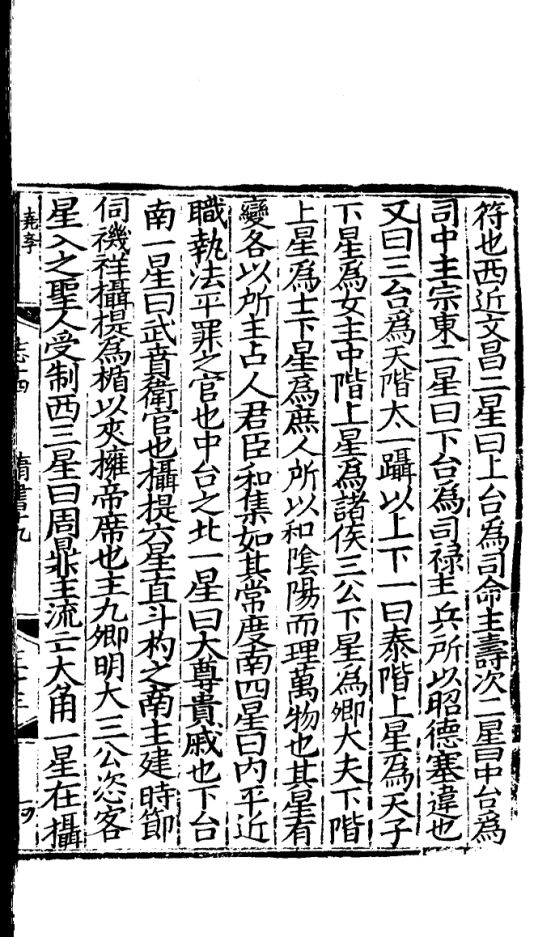 符也西近文昌二星曰上台爲司命主壽次二星曰中台爲
司中主宗東二星曰下台爲司禄主兵所以昭德塞違也
又曰三台爲天階太一躡以上下一曰泰階上星爲天子
下星爲女主中階上星爲諸侯三公下星爲卿大夫下階
上星爲士下星爲庶人所以和隂陽而理萬物也其星有
變各以所主占人君臣和集如其常度南四星曰内平近
職執法平罪之官也中台之北一星曰大尊貴戚也下台
南一星曰武賁衛官也攝提六星直斗杓之南主建時節
伺禨祥攝提爲楯以夾擁帝席也主九卿明大三公恣客
星入之聖人受制西三星曰周鼎主流亡大角一星在攝
志十四 隋書十九